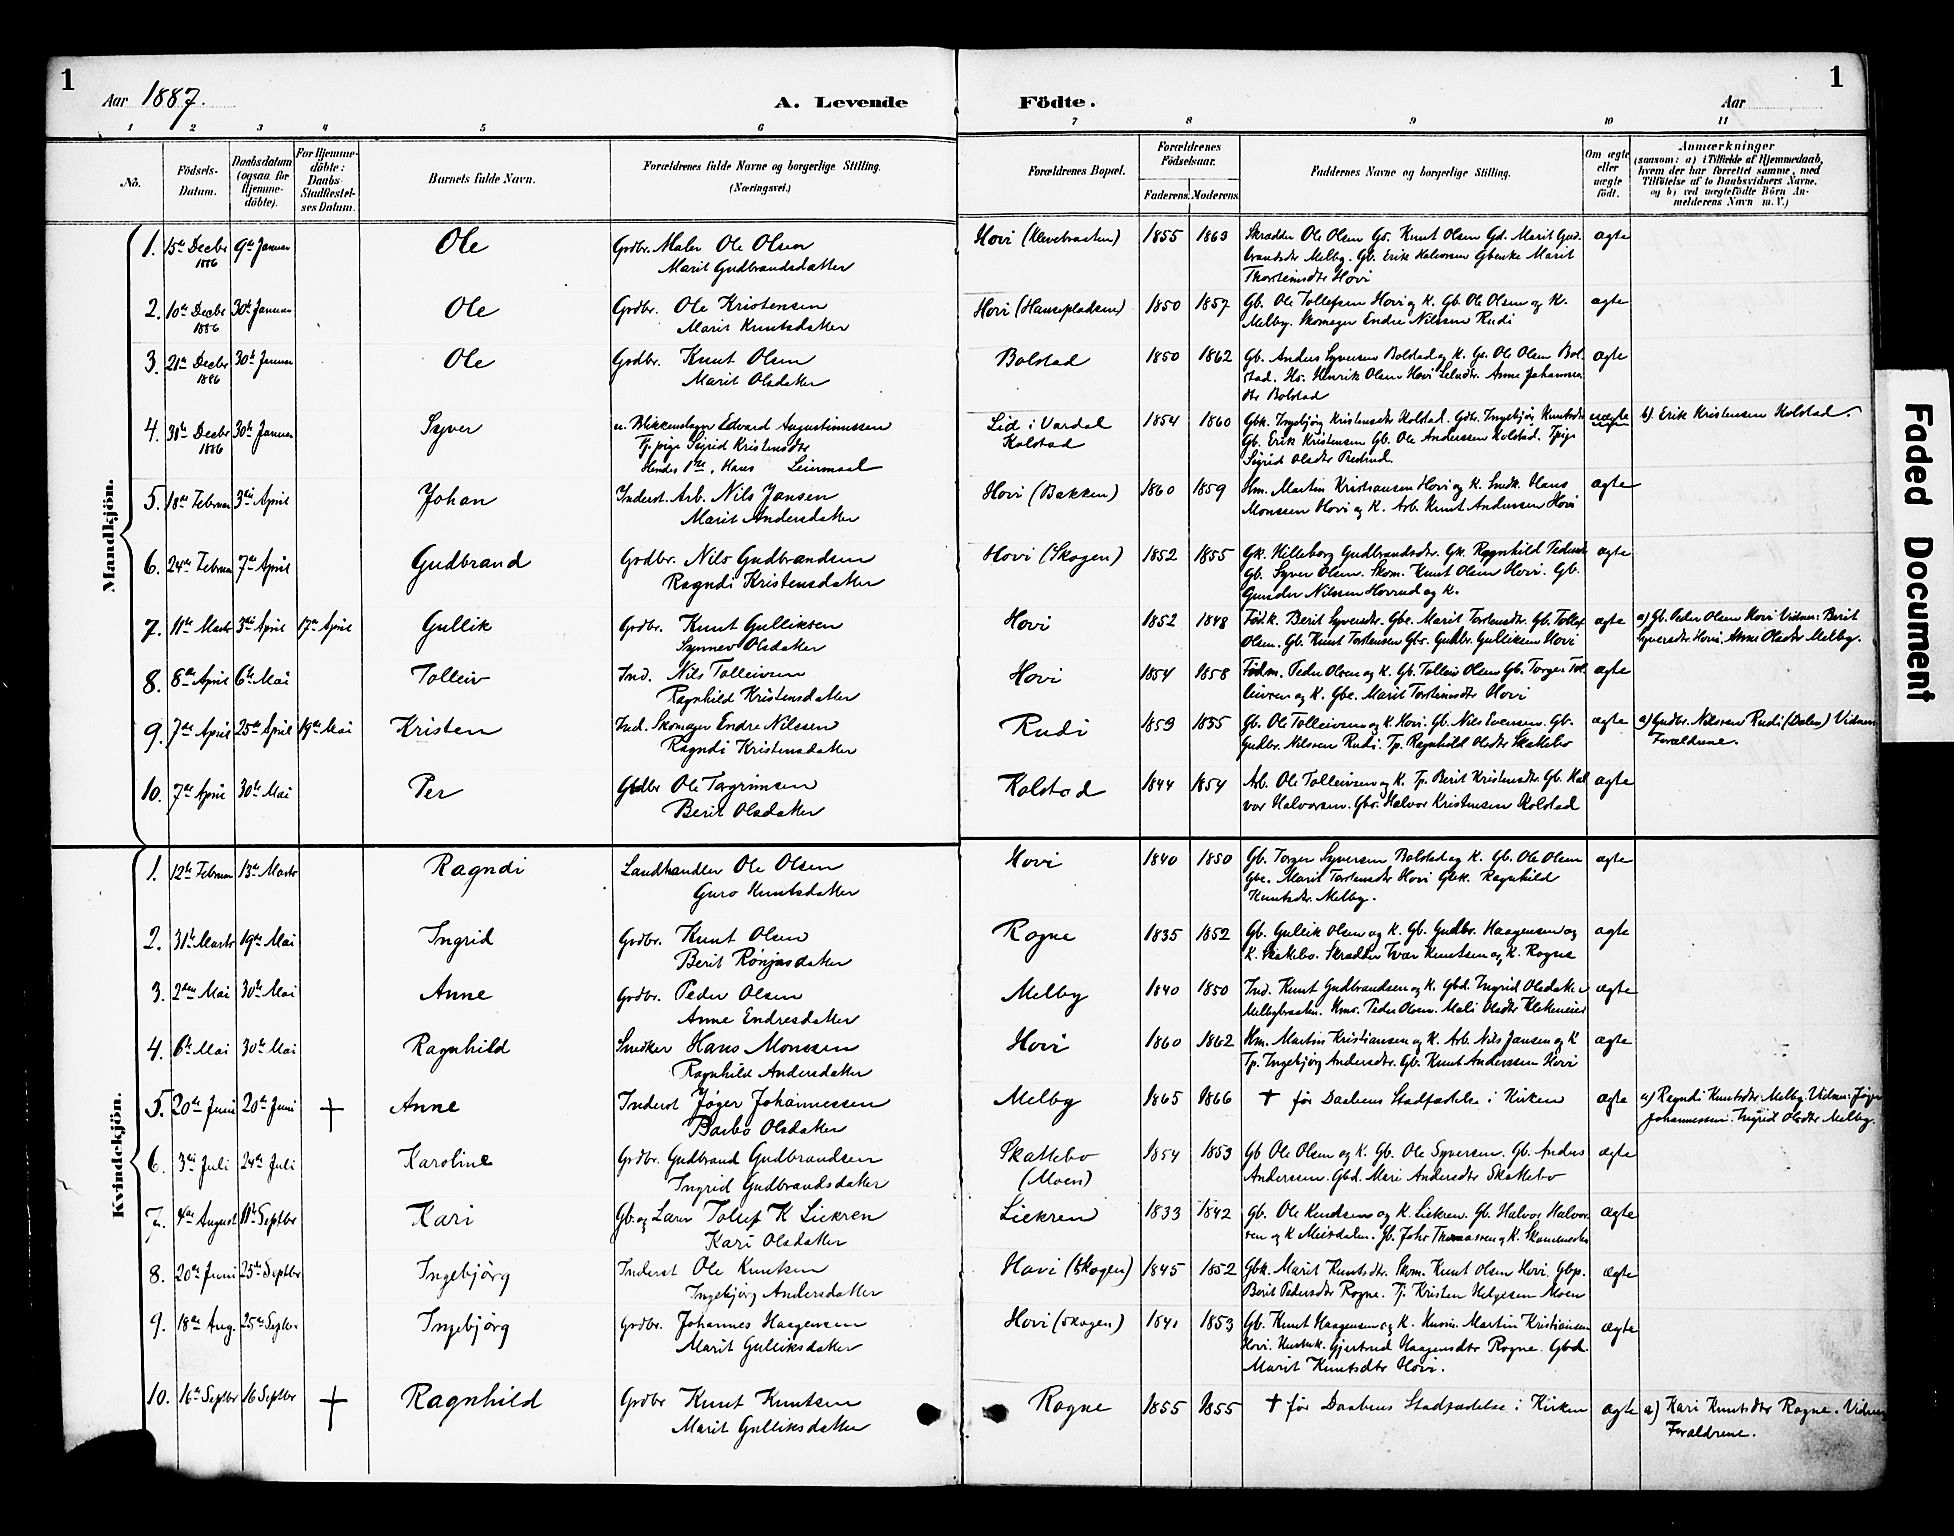 1
Aar 1887.
A. Levende
Födte.
Aar
1
1 2 3 4 5 6 7 8 9 10 11
No.
Födsels-
Datum.
Daabsdatum
(ogsaa for
Hjemme-
döbte).
For Hjemme-
döbte:
Daabs-
Stadfæstel-
ses Datum.
Barnets fulde Navn.
Forældrenes fulde Navne og borgerlige Stilling.
(Næringsvei.)
Forældrenes Bopæl.
Forældrenes
Födselsaar.
Faderens. Moderens.
Faddernes Navne og borgerlige Stilling.
Om ægte
eller
uægte
födt.
Anmærkninger
(saasom: a) i Tilfælde af Hjemmedaab,
hvem der har forrettet samme, med
Tilföielse af to Daabsvidners Navne,
og b) ved uægtefödte Börn An-
melderens Navn m. V.)
Mandkjön.
1. 15de Decbr 9de Januar Ole Grdbr. Maler Ole Olsen Hovi 1855 1863 Skrædder Ole Olsen Gs. Knut Olsen Gd. Marit Gud- ægte
1886 Marit Gudbrandsdatter brandsdtr Melby. Gb. Erik Halvorsen Gbenke Marit
Thorsteinsdtr Hovi
2. 10de Decbr 30te Januar Ole Grdbr. Ole Kristensen Hovi (Hansepladsen) 1850 1857 Gb. Ole Tollefsen Hovi og K. Gb. Ole Olsen og K. ægte
1886 Marit Knutsdatter Melby. Skomager Endre Nilssen Rudi
3. 21de Decbr 30te Januar Ole Grdbr. Knut Olsen Bolstad 1850 1862 Gb. Anders Syversen Bolstad og K. Gs. Ole Olsen Bol- ægte
1886 Marit Olsdatter stad. Hs. Henrik Olsen Hovi Anne Johannes-
dtr Bolstad
4. 31te Decbr 30te Januar Syver u. Blikkenslager Edvard Augustinussen Lid i Vardal 1854 1860 Gbk. Ingebjørg Kristensdtr Kolstad. Gdtr. Ingebjør Knutsdtr uægte b). Erik Kristensen Kolstad.
1886 Tj. pige Sigrid Kristensdtr Kolstad Gb. Erik Kristensen Gb. Ole Anderssen Kolstad. Tpige
Hendes 1ste, Hans Leiermaal Sigrid Olsdtr
5. 18de Februar 3die April Johan Inderst. Arb. Nils Jansen Hovi (Bakken) 1860 1859 Hm. Martin Kristiansen Hovi og K. Snedk. Hans ægte
Marit Andersdatter Monssen Hovi og K. Arb. Knut Anderssen Hovi
6. 24de Februar 7de April Gudbrand Grdbr. Nils Gudbrandsen Hovi (Skogen) 1852 1855 Gk. Helleborg Gudbrandsdtr. Gk. Ragnhild Pedersdtr ægte
Ragndi Kristensdatter Gb. Syver Olsen. Skom. Knut Olsen Hovi. Gb.
Gunder Nilssen Hovrud og K.
7. 11te Marts 3die April 17de April Gullik Grdbr. Knut Gulliksen Hovi 1852 1848 Fødk. Berit Syversdtr. Gbe. Marit Torstensdtr. Gb. Tollef ægte a) Gb. Peder Olsen Hovi Vidner: Berit
Synnev Olsdatter Olsen. Gb. Knut Torstensen Gbs. Gudbr. Gulliksen Hovi Syversdtr. Hovi. Anne Olsdtr Melby.
8. 8de April 6te Mai Tolleiv Ind. Nils Tolleivsen Hovi 1854 1858 Fødm. Peder Olsen og K. Gb. Tolleiv Olsen Gb. Torger Tol- ægte
Ragnhild Kristensdatter leivsen og K. Gbe. Marit Torsteinsdtr Hovi
9. 7de April 25de April 19de Mai Kristen Ind. Skomager Endre Nilssen Rudi 1859 1855 Gb. Ole Tolleivsen og K. Hovi. Gb. Nils Evensen. Gb. ægte a) Gudbr. Nilssen Rudi (Dalen) Vidner
Ragndi Kristensdatter Gudbr. Nilssen Rudi. Tp. Ragnhild Olsdtr Skattebo Forældrene.
10. 7de April 30te Mai Per Grdbr Ole Torgrimsen Kolstad 1844 1854 Arb. Ole Tolleivsen og K. Tp. Berit Kristensdtr. Gb. Hal ægte
Berit Olsdatter vor Halvorsen. Gbs. Halvor Kristensen Kolstad
Kvindekjön.
1. 12te Februar 13de Marts Ragndi Landhandler Ole Olsen Hovi 1840 1850 Gb. Torger Syversen Bolstad og K. Gb. Ole Olsen ægte
Guro Knutsdatter Gbe. Marit Torstensdtr Hovi Gbk. Ragnhild
Knutsdtr. Melby.
2. 31te Marts 19de Mai Ingrid Grdbr. Knut Olsen Rogne 1835 1852 Gb. Gullik Olsen og K. Gb. Gudbr. Haagensen og ægte
Berit Rönjusdatter K. Skattebo. Skrædder Ivar Knutsen og K. Rogne
3. 2den Mai 30te Mai Anne Grdbr. Peder Olsen Melby 1840 1850 Ind. Knut Gudbrandsen og K. Gbd. Ingrid Olsdatter ægte
Anne Endresdatter Melbybraaten. Hms. Peder Olsen. Mali Olsdtr
4. 6te Mai 30te Mai Ragnhild Snedker Hans Monssen Hovi 1860 1862 Hm. Martin Kristiansen og K. Arb. Nils Jansen og K ægte
Ragnhild Andersdatter Tp. Ingebjørg Andersdtr. Gb. Knut Anderssen Hovi
5. 20de Juni 20de Juni † Anne Inderst Jøger Johannessen Melby 1865 1866 † før Daabens Stadfæstelse i Kirken ægte a) Ragndi Knutsdtr. Melby. Vidner: Jøger
Barbo Olsdatter Johannessen. Ingrid Olsdtr Melby.
6. 3die Juli 24de Juli Karoline Grdbr. Gudbrand Gudbrandsen Skattebo 1854 1853 Gb Ole Olsen og K. Gb. Ole Syversen. Gb. Anders ægte
Ingrid Gudbrandsdatter (Moen) Anderssen. Gbd. Mari Andersdtr Skattebo
7. 4de August 11te Septbr Kari Gb. og Lærer Tollef K Liekren Liekren 1833 1842 Gb. Ole Knudsen og K. Liekren. Gb. Halvor Halvor- ægte
Kari Olsdatter sen og K Meisdalen. Gb. John Thomassen og K.
8. 20de Juni 25de Septbr Ingebjörg Inderst Ole Knutsen Hovi (Skogen) 1845 1852 Gbk. Marit Knutsdtr. Skom. Knut Olsen Hovi. Gbp. ægte
Ingebjörg Andersdatter Berit Pedersdtr Rogne. Tj. Kristen Helgesen Moen
9. 18de Aug. 25de Septbr. Ingebjörg Grdbr. Johannes Haagensen Hovi (Skogen) 1841 1853 Gb. Knut Haagensen og K. Husm. Martin Kristiansen ægte
Marit Gulliksdatter Hovi. Gjertrud Haagensdtr Rogne. Gbd.
Marit Knutsdtr Hovi.
10. 16de Septbr 16 Septbr † Ragnhild Grdbr Knut Knutsen Rogne 1855 1855 † før Daabens Stadfæstelse i Kirken ægte a) Kari Knutsdtr Rogne. Vidner
Marit Gulliksdatter Forældrene.
Faded Document